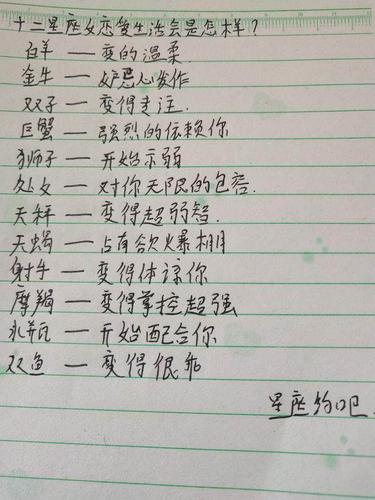 十二星座女恋爱生活会是怎样？
白羊 — 变的温柔.
金牛 — 妒忌心发作
双子 — 变得专注.
巨蟹 — 强烈的依赖你
狮子 — 开始示弱
处女 — 对你无限的包容.
天秤 — 变得超弱智.
天蝎 — 占有欲爆棚
射手 — 变得体谅你
摩羯 — 变得掌控超强
水瓶 — 开始配合你
双鱼 — 变得很乖
星座约吧